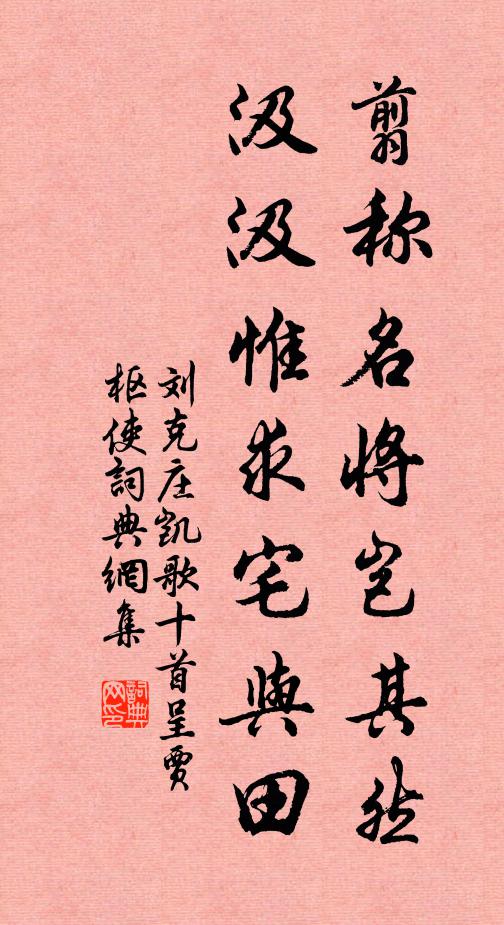 翦称名将岂其然
汲汲惟求宅與田
刘克庄凯歌十首呈贾
枢使詞典網集
詞典
网印